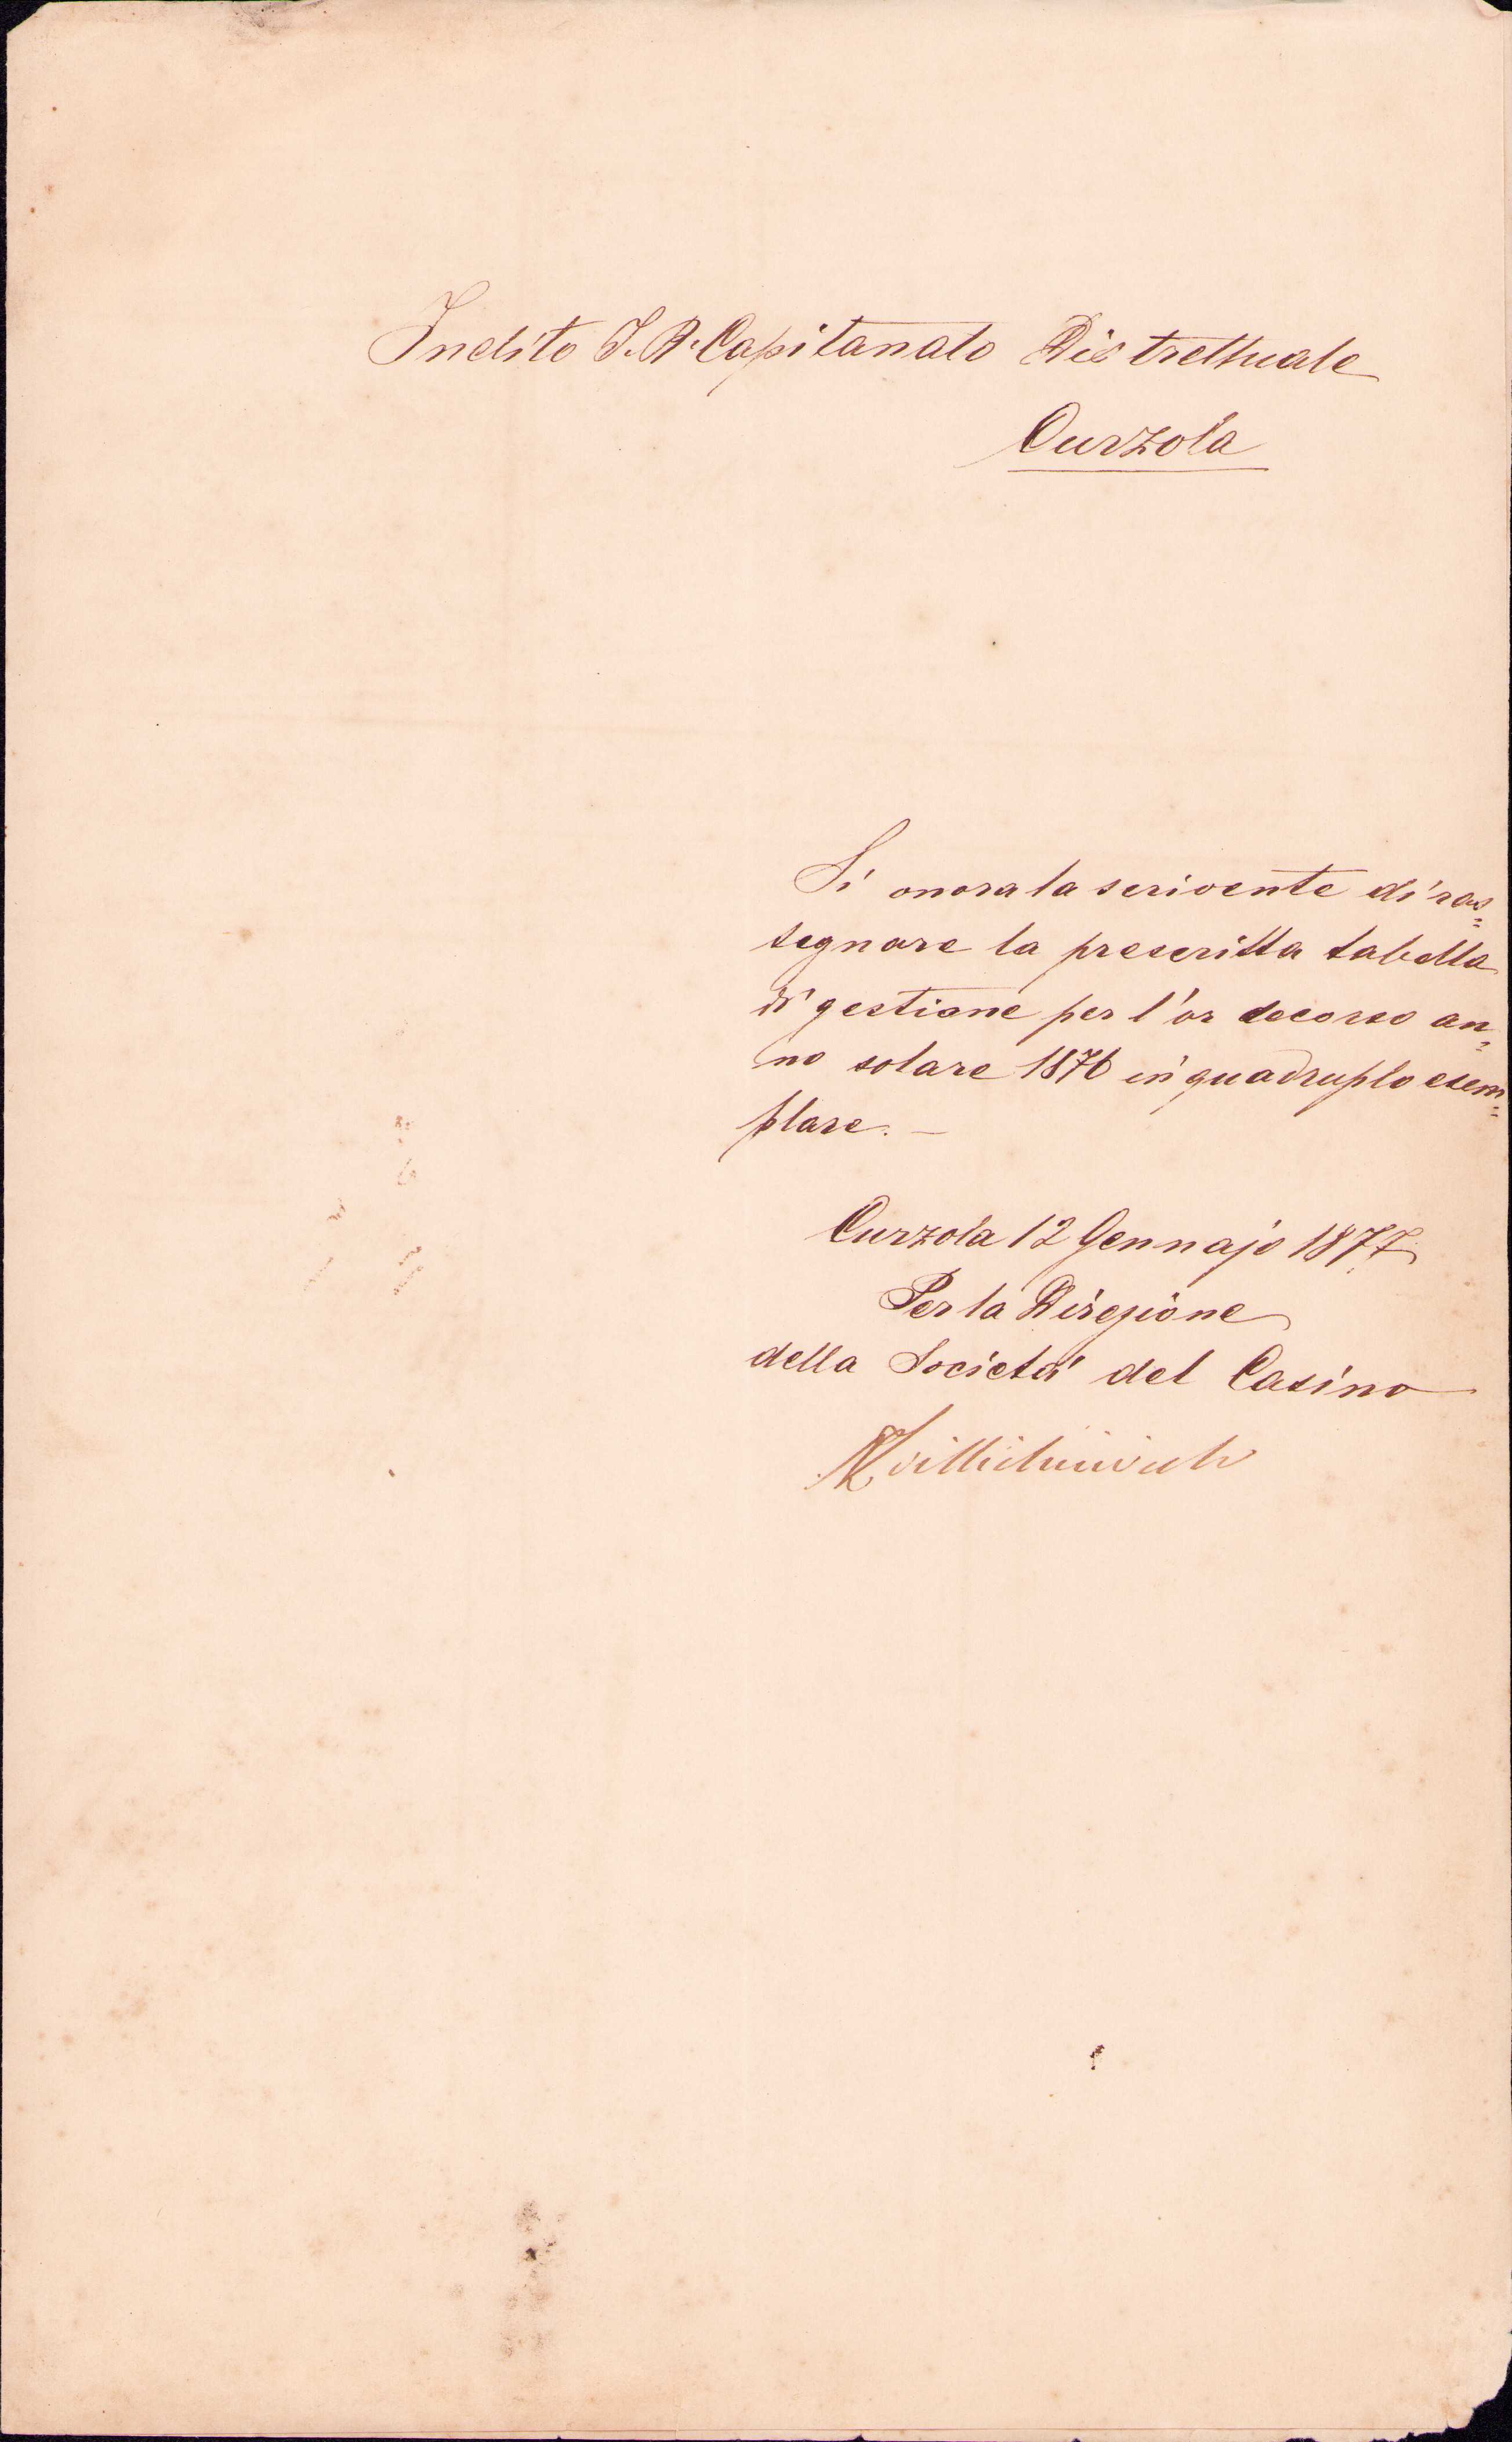 Inclito I. R. Capitanato Distrettuale
Curzola
Si onora la scrivente di ras=
segnare la prescritta tabella
di gestione per l'or decorso an=
no solare 1876 in quadruplo esem=
plare. —
Curzola 12 Gennajo 1877
Per la Direzione
della Società del Casino